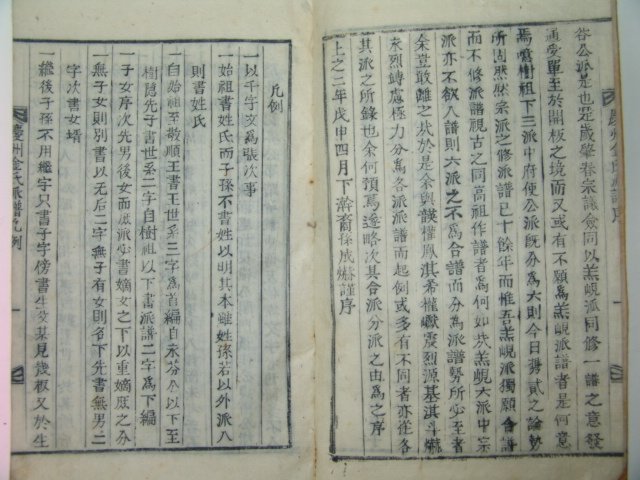 谷公派是也是歲肇春宗議僉同以羔峴派同修一譜之意發
通受單至於開板之境而又或有不願爲羔峴派譜者是何意
焉噫樹祖下三派中府使公派旣分爲六則今日携貳之論勢
所固然然宗派之修派譜已十餘年而惟吾羔峴派獨願合譜
而不修派譜視古之同高祖作譜者爲何如耶羔峴六派中宗
派亦不欲入譜則六派之不爲合譜而分爲派譜勢所必至者
余豈敢離之哉於是與護權鳳淇希權巘震烈源基淇斗
永烈竱慮極力分爲各派派譜而起例或多有不同者亦從各
其派之所錄也余何預焉遂略次其合派分派之由爲之序
上之三年戊申四月下澣裔孫成 謹序
慶州金氏派譜序
凡例
一以千字文爲張次事
一始祖書姓氏而子孫不書姓以明其本雖姓孫若以外派入
則書姓氏
一自始祖至敬順王書王世系三字爲首編自永芬公以下至
樹隱先子書世系二字自樹祖以下書派譜二字爲下編
一子女序次先男後女而庶派必書嫡女之下以重嫡庶之分
一無子女則別書以无后二字無子有女則名下先書無男二
字次書女壻
一繼後子孫不用繼字只書子字傍書生父某見幾板又於生
慶州金氏派譜凡例
一